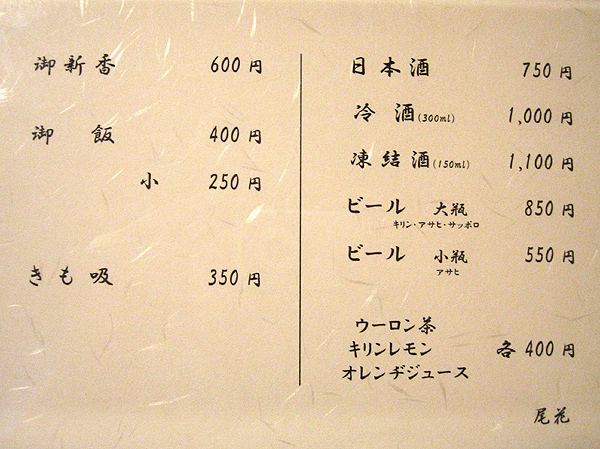 御新香 600円
御飯 400円
小 250円
きも吸 350円
日本酒 750円
冷酒(300ml) 1,000円
凍結酒(150ml) 1,100円
ビール 大瓶 850円
キリン・アサヒ・サッポロ
ビール 小瓶 550円
アサヒ
ウーロン茶
キリンレモン 各400円
オレンヂジュース
尾花